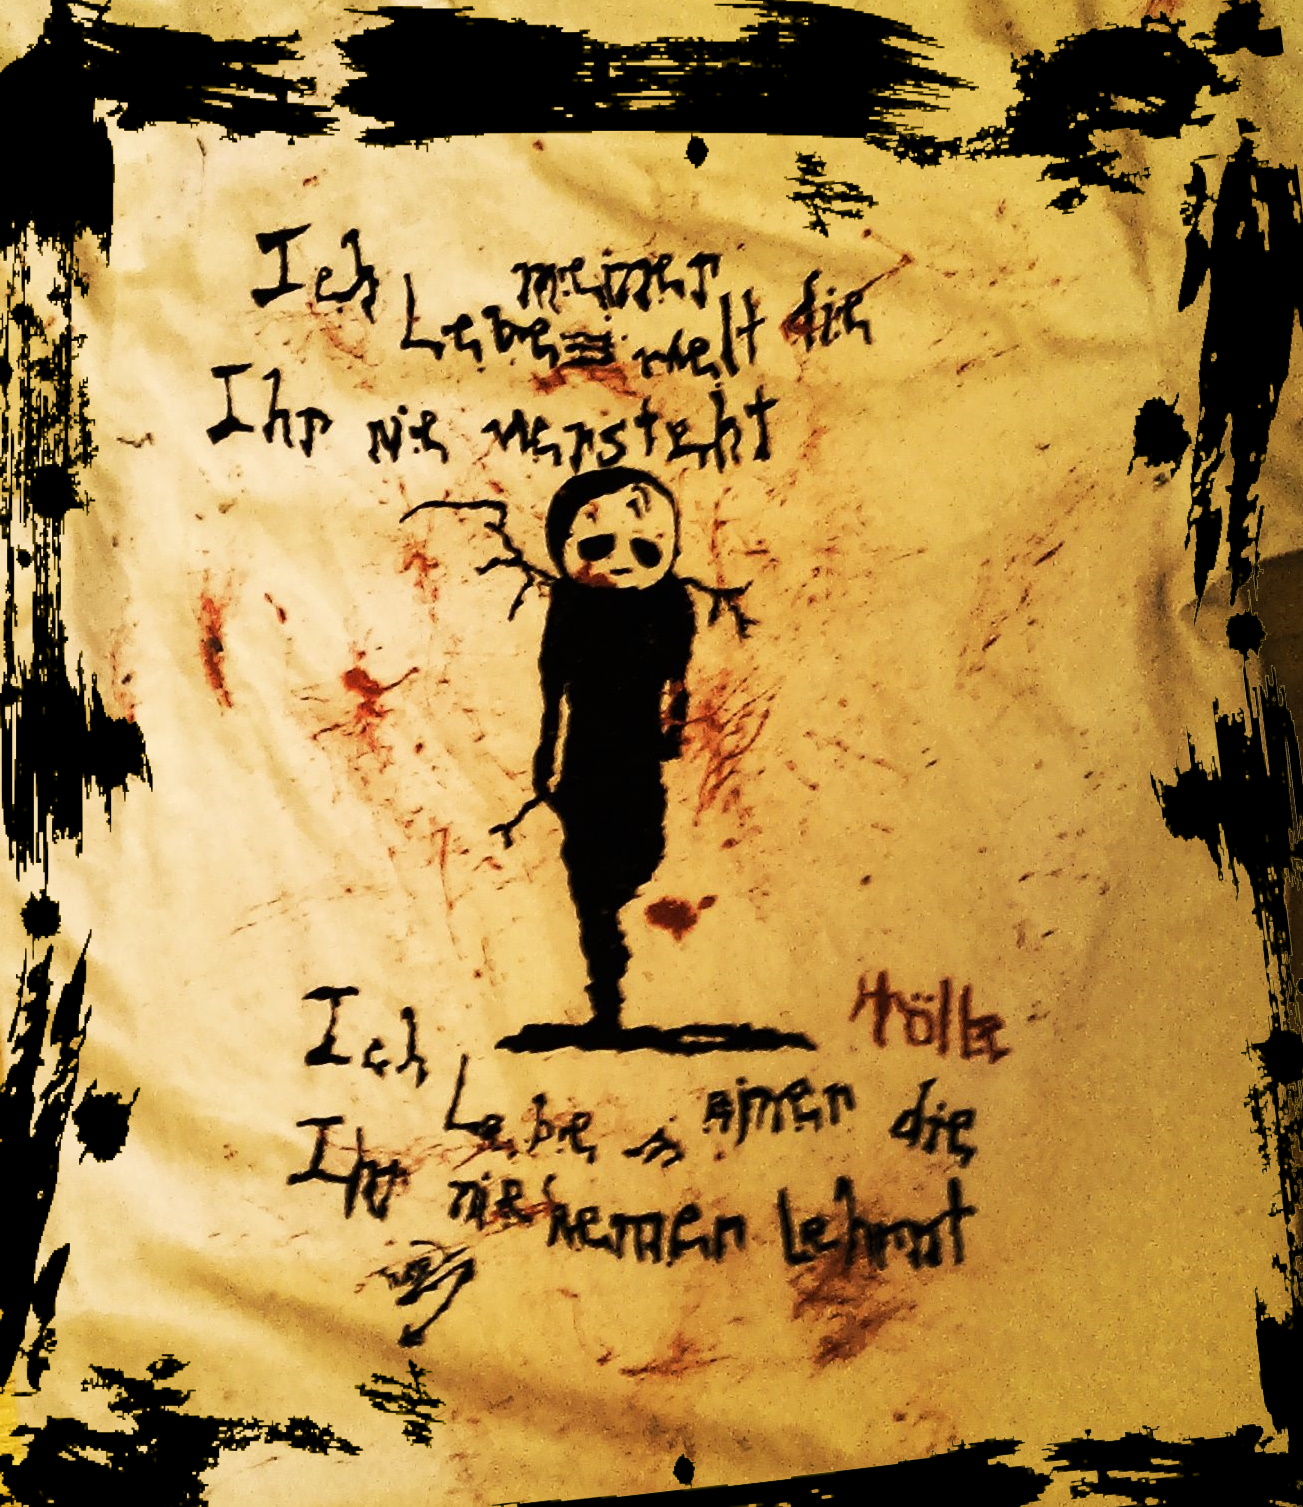 Ich meiner
Lebe welt die
Ihr nie versteht
Hölle
Ich
Lebe in einer die
Ihr nie kennen lehrnt